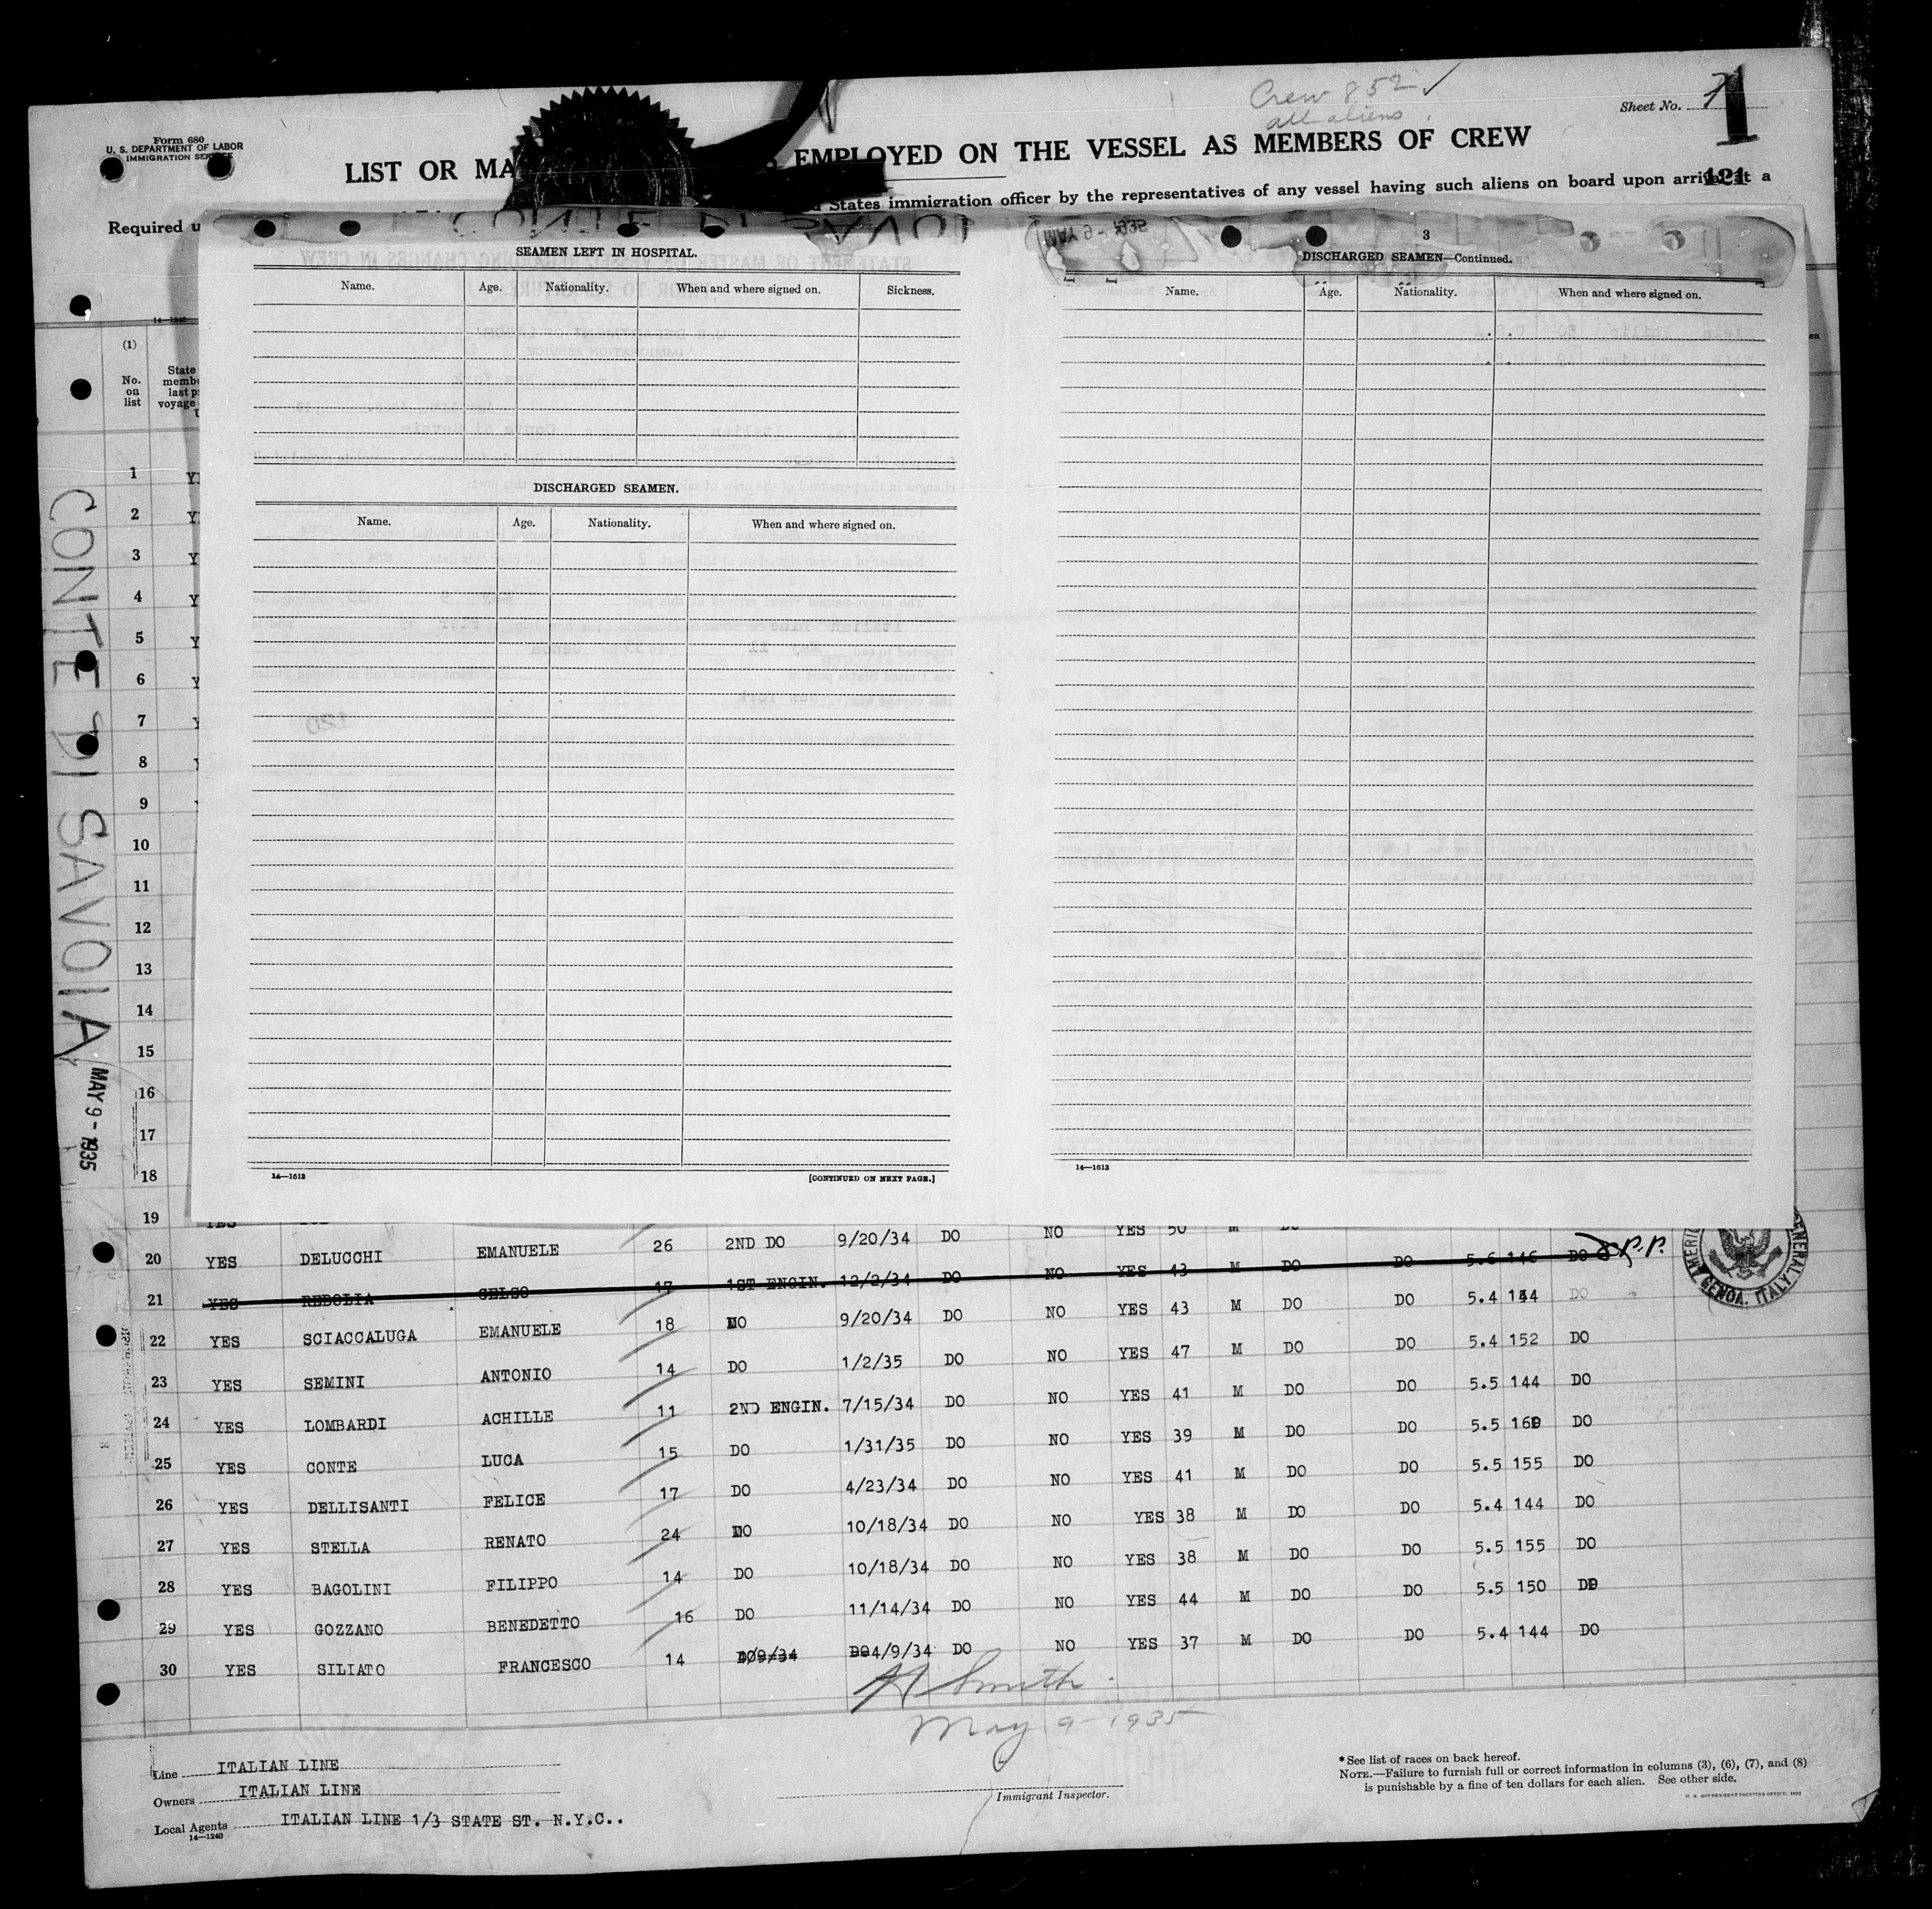 Crew 852 ✓
all aliens
Sheet No. 1
121
Form 680
U. S. DEPARTMENT OF LABOR
IMMIGRATION SERVICE
LIST OR MA EMPLOYED ON THE VESSEL AS MEMBERS OF CREW
Required u d States immigration officer by the representatives of any vessel having such aliens on board upon arrival at a
CONTE DI SAVOI
MAY 9 - 1935
14—1240
(1)
No. on list
State
memb
last p
voyage
CONTE DI SAVOIA
MAY 9 - 1935
SEAMEN LEFT IN HOSPITAL.
Name. Age. Nationality. When and where signed on. Sickness.
DISCHARGED SEAMEN.
Name. Age. Nationality. When and where signed on.
14—1613 [CONTINUED ON NEXT PAGE.]
3
DISCHARGED SEAMEN—Continued.
Name. Age. Nationality. When and where signed on.
14—1613
1 Y
2 Y
3 Y
4 Y
5 Y
6 Y
7 Y
8
9
10
11
12
13
14
15
16
17
18
19 YES NO YES 50 M DO
20 YES DELUCCHI EMANUELE 26 2ND DO 9/20/34 DO NO YES 43 M DO DO 5.6 146 DO
21 YES REBOLIA CELSO 17 1ST ENGIN. 12/2/34 DO NO YES 43 M DO DO 5.4 134 DO
22 YES SCIACCALUGA EMANUELE 18 DO 9/20/34 DO NO YES 47 M DO DO 5.4 152 DO
23 YES SEMINI ANTONIO 14 DO 1/2/35 DO NO YES 41 M DO DO 5.5 144 DO
24 YES LOMBARDI ACHILLE 11 2ND ENGIN. 7/15/34 DO NO YES 39 M DO DO 5.5 160 DO
25 YES CONTE LUCA 15 DO 1/31/35 DO NO YES 41 M DO DO 5.5 155 DO
26 YES DELLISANTI FELICE 17 DO 4/23/34 DO NO YES 38 M DO DO 5.4 144 DO
27 YES STELLA RENATO 24 DO 10/18/34 DO NO YES 38 M DO DO 5.5 155 DO
28 YES BAGOLINI FILIPPO 14 DO 10/18/34 DO NO YES 44 M DO DO 5.5 150 DO
29 YES GOZZANO BENEDETTO 16 DO 11/14/34 DO NO YES 37 M DO DO 5.4 144 DO
30 YES SILIATO FRANCESCO 14 4/9/34 DO
GENOA, ITALY
Smith
May 9 - 1935
Immigrant Inspector.
Line ITALIAN LINE
Owners ITALIAN LINE
Local Agents ITALIAN LINE 1/3 STATE ST. N.Y.C..
14—1240
* See list of races on back hereof.
NOTE.—Failure to furnish full or correct information in columns (3), (6), (7), and (8)
is punishable by a fine of ten dollars for each alien. See other side.
U. S. GOVERNMENT PRINTING OFFICE: